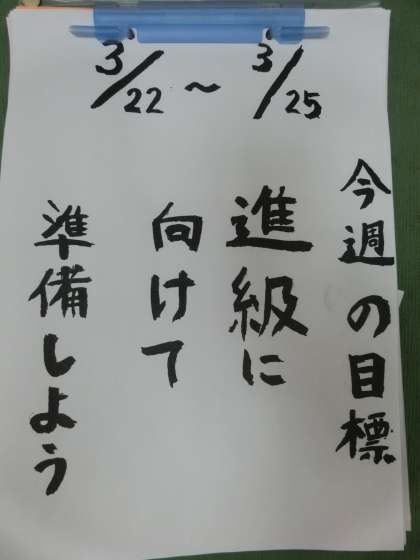 3/22〜3/25
今週の目標
進級に
向けて
準備しよう